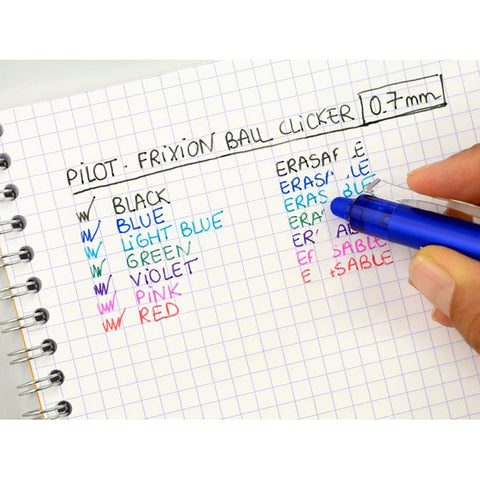 PILOT - FRIXION BALL CLICKER 0.7mm
BLACK
BLUE
LIGHT BLUE
GREEN
VIOLET
PINK
RED
ERASA LE
ERASA BLE
ERAS BLE
ERASA
ER AB
E SABLE
E SABLE